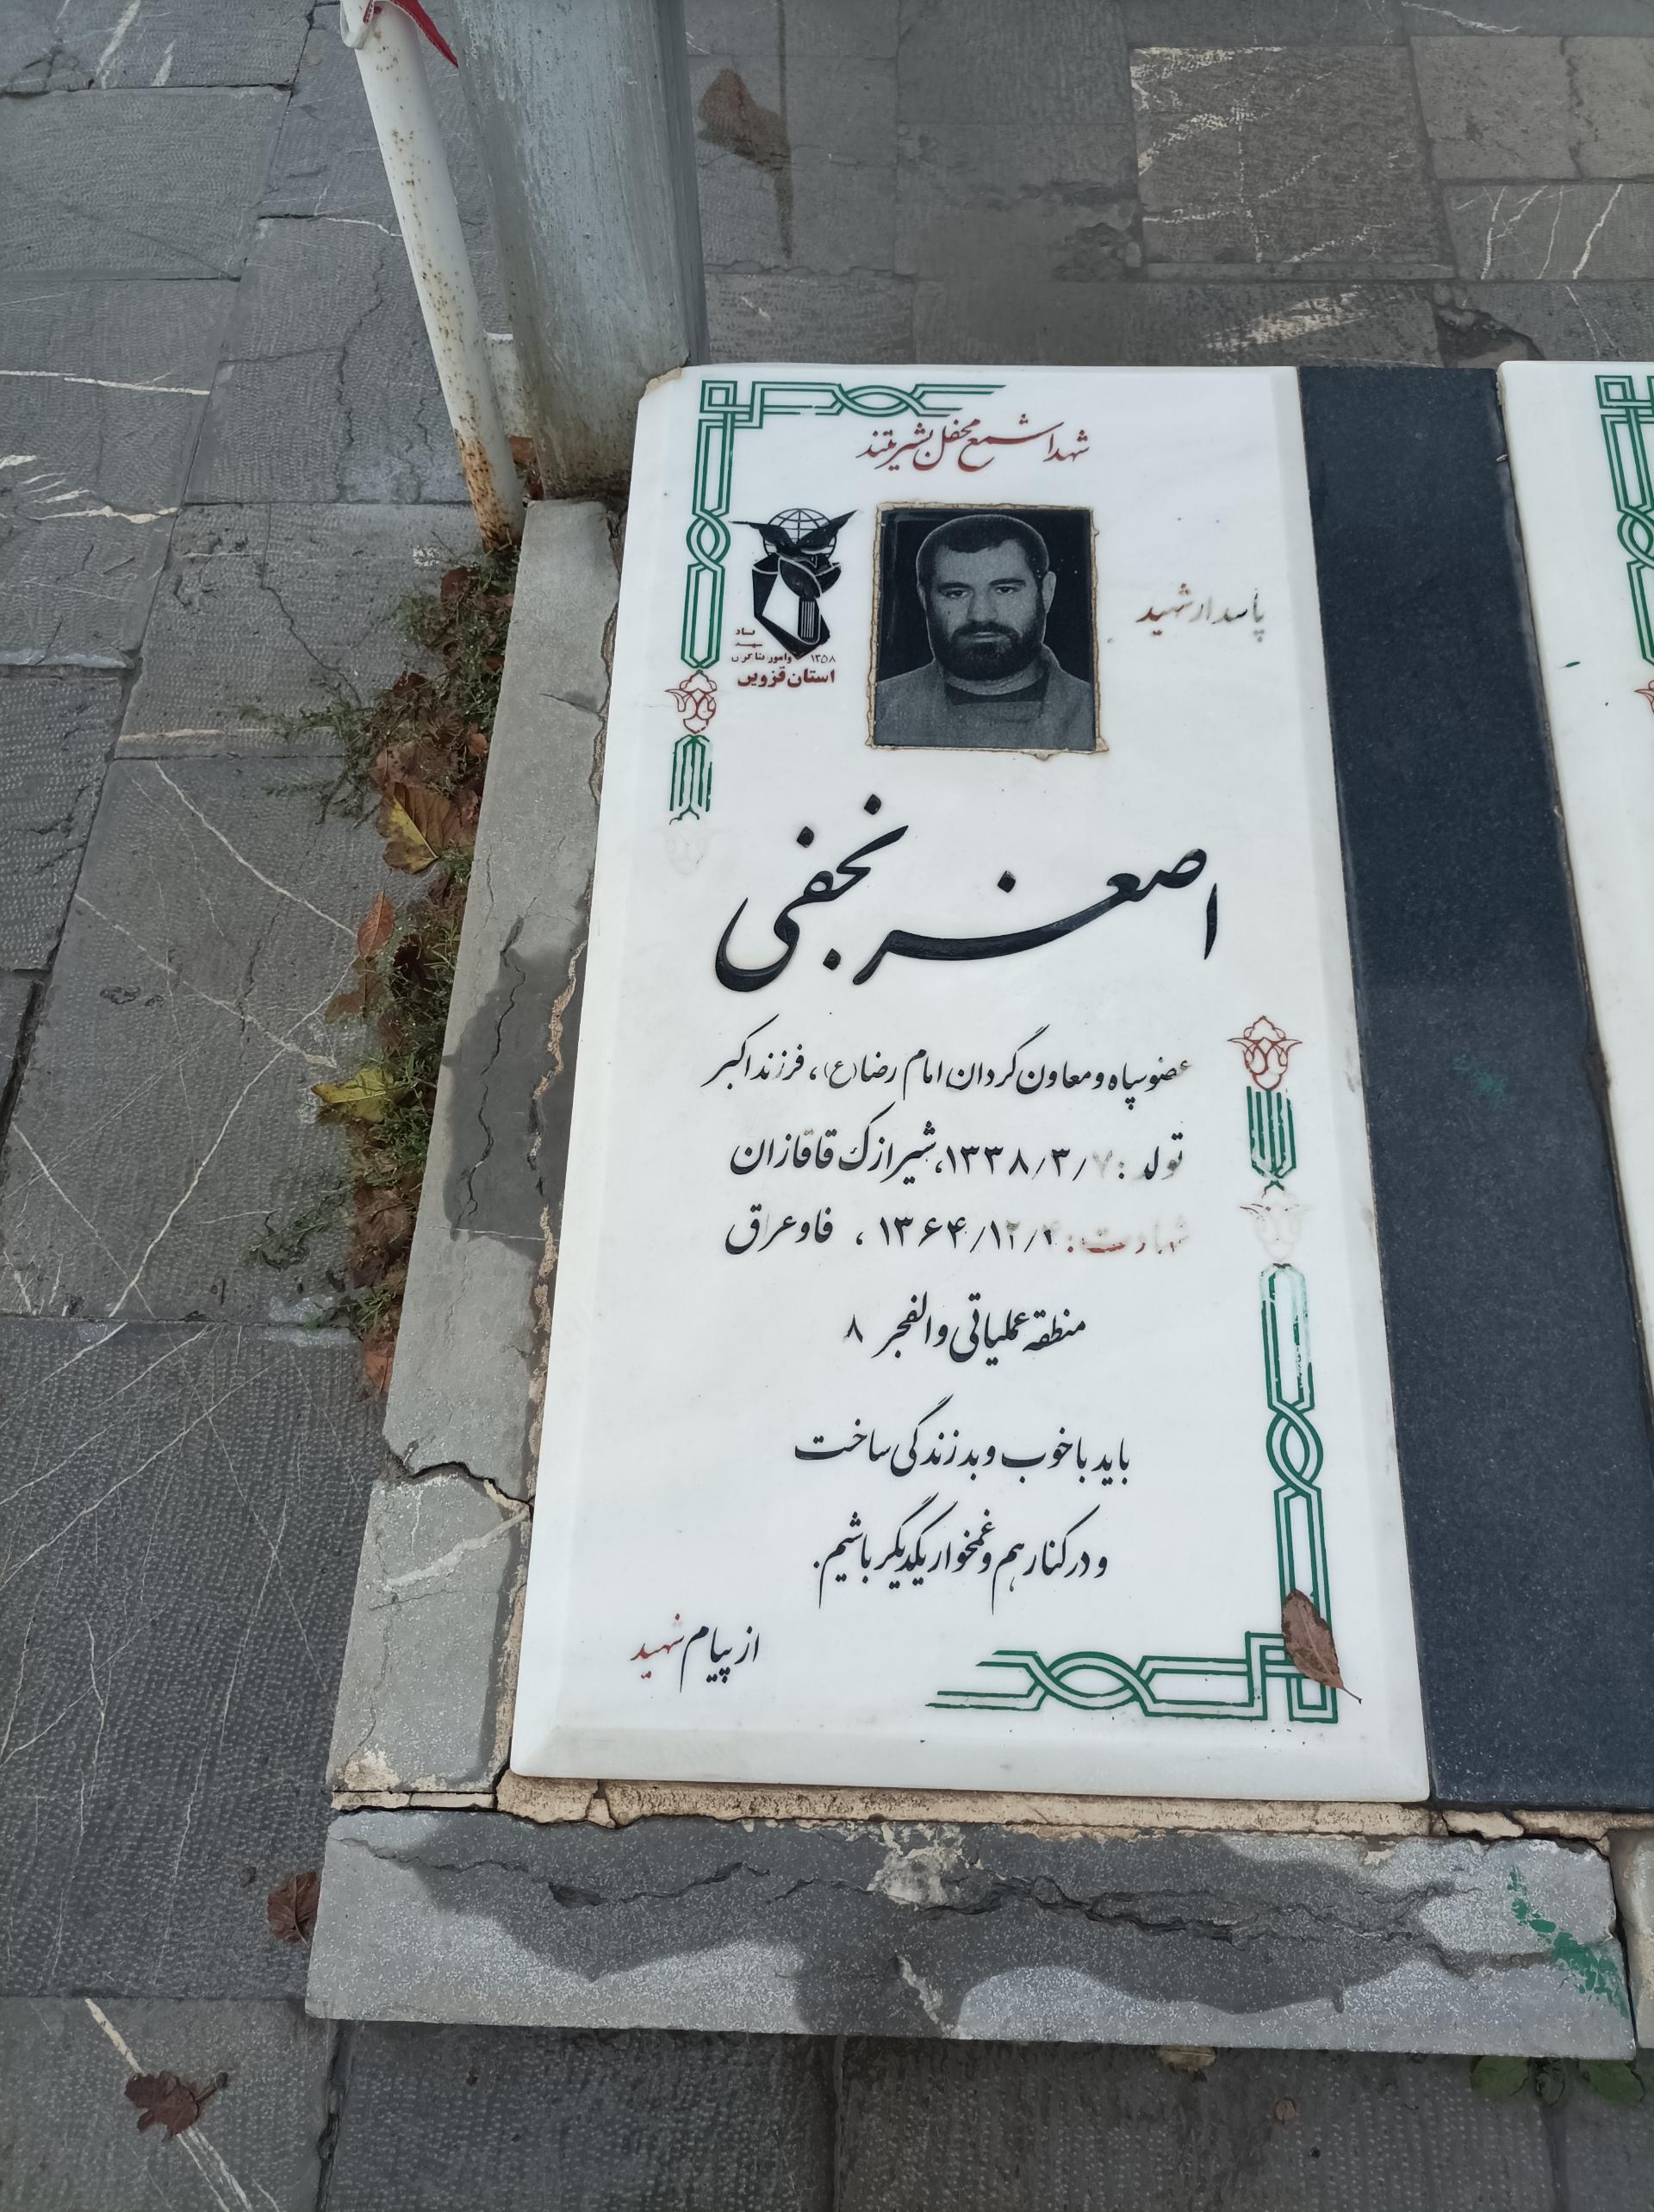 شهدا شمع محفل بشریتند
پاسدار شهید
۱۳۵۸
استان قزوین
اصغر نجفی
عضو سپاه و معاون گردان امام رضا(ع)، فرزند اکبر
تولد : ۱۳۳۸/۳/۷، شیرازک قاقازان
شهادت: ۱۳۶۴/۱۲/۴ ، فاو عراق
منطقه عملیاتی والفجر ۸
باید با خوب و بد زندگی ساخت
و در کنار هم و غمخوار یکدیگر باشیم.
از پیام شهید